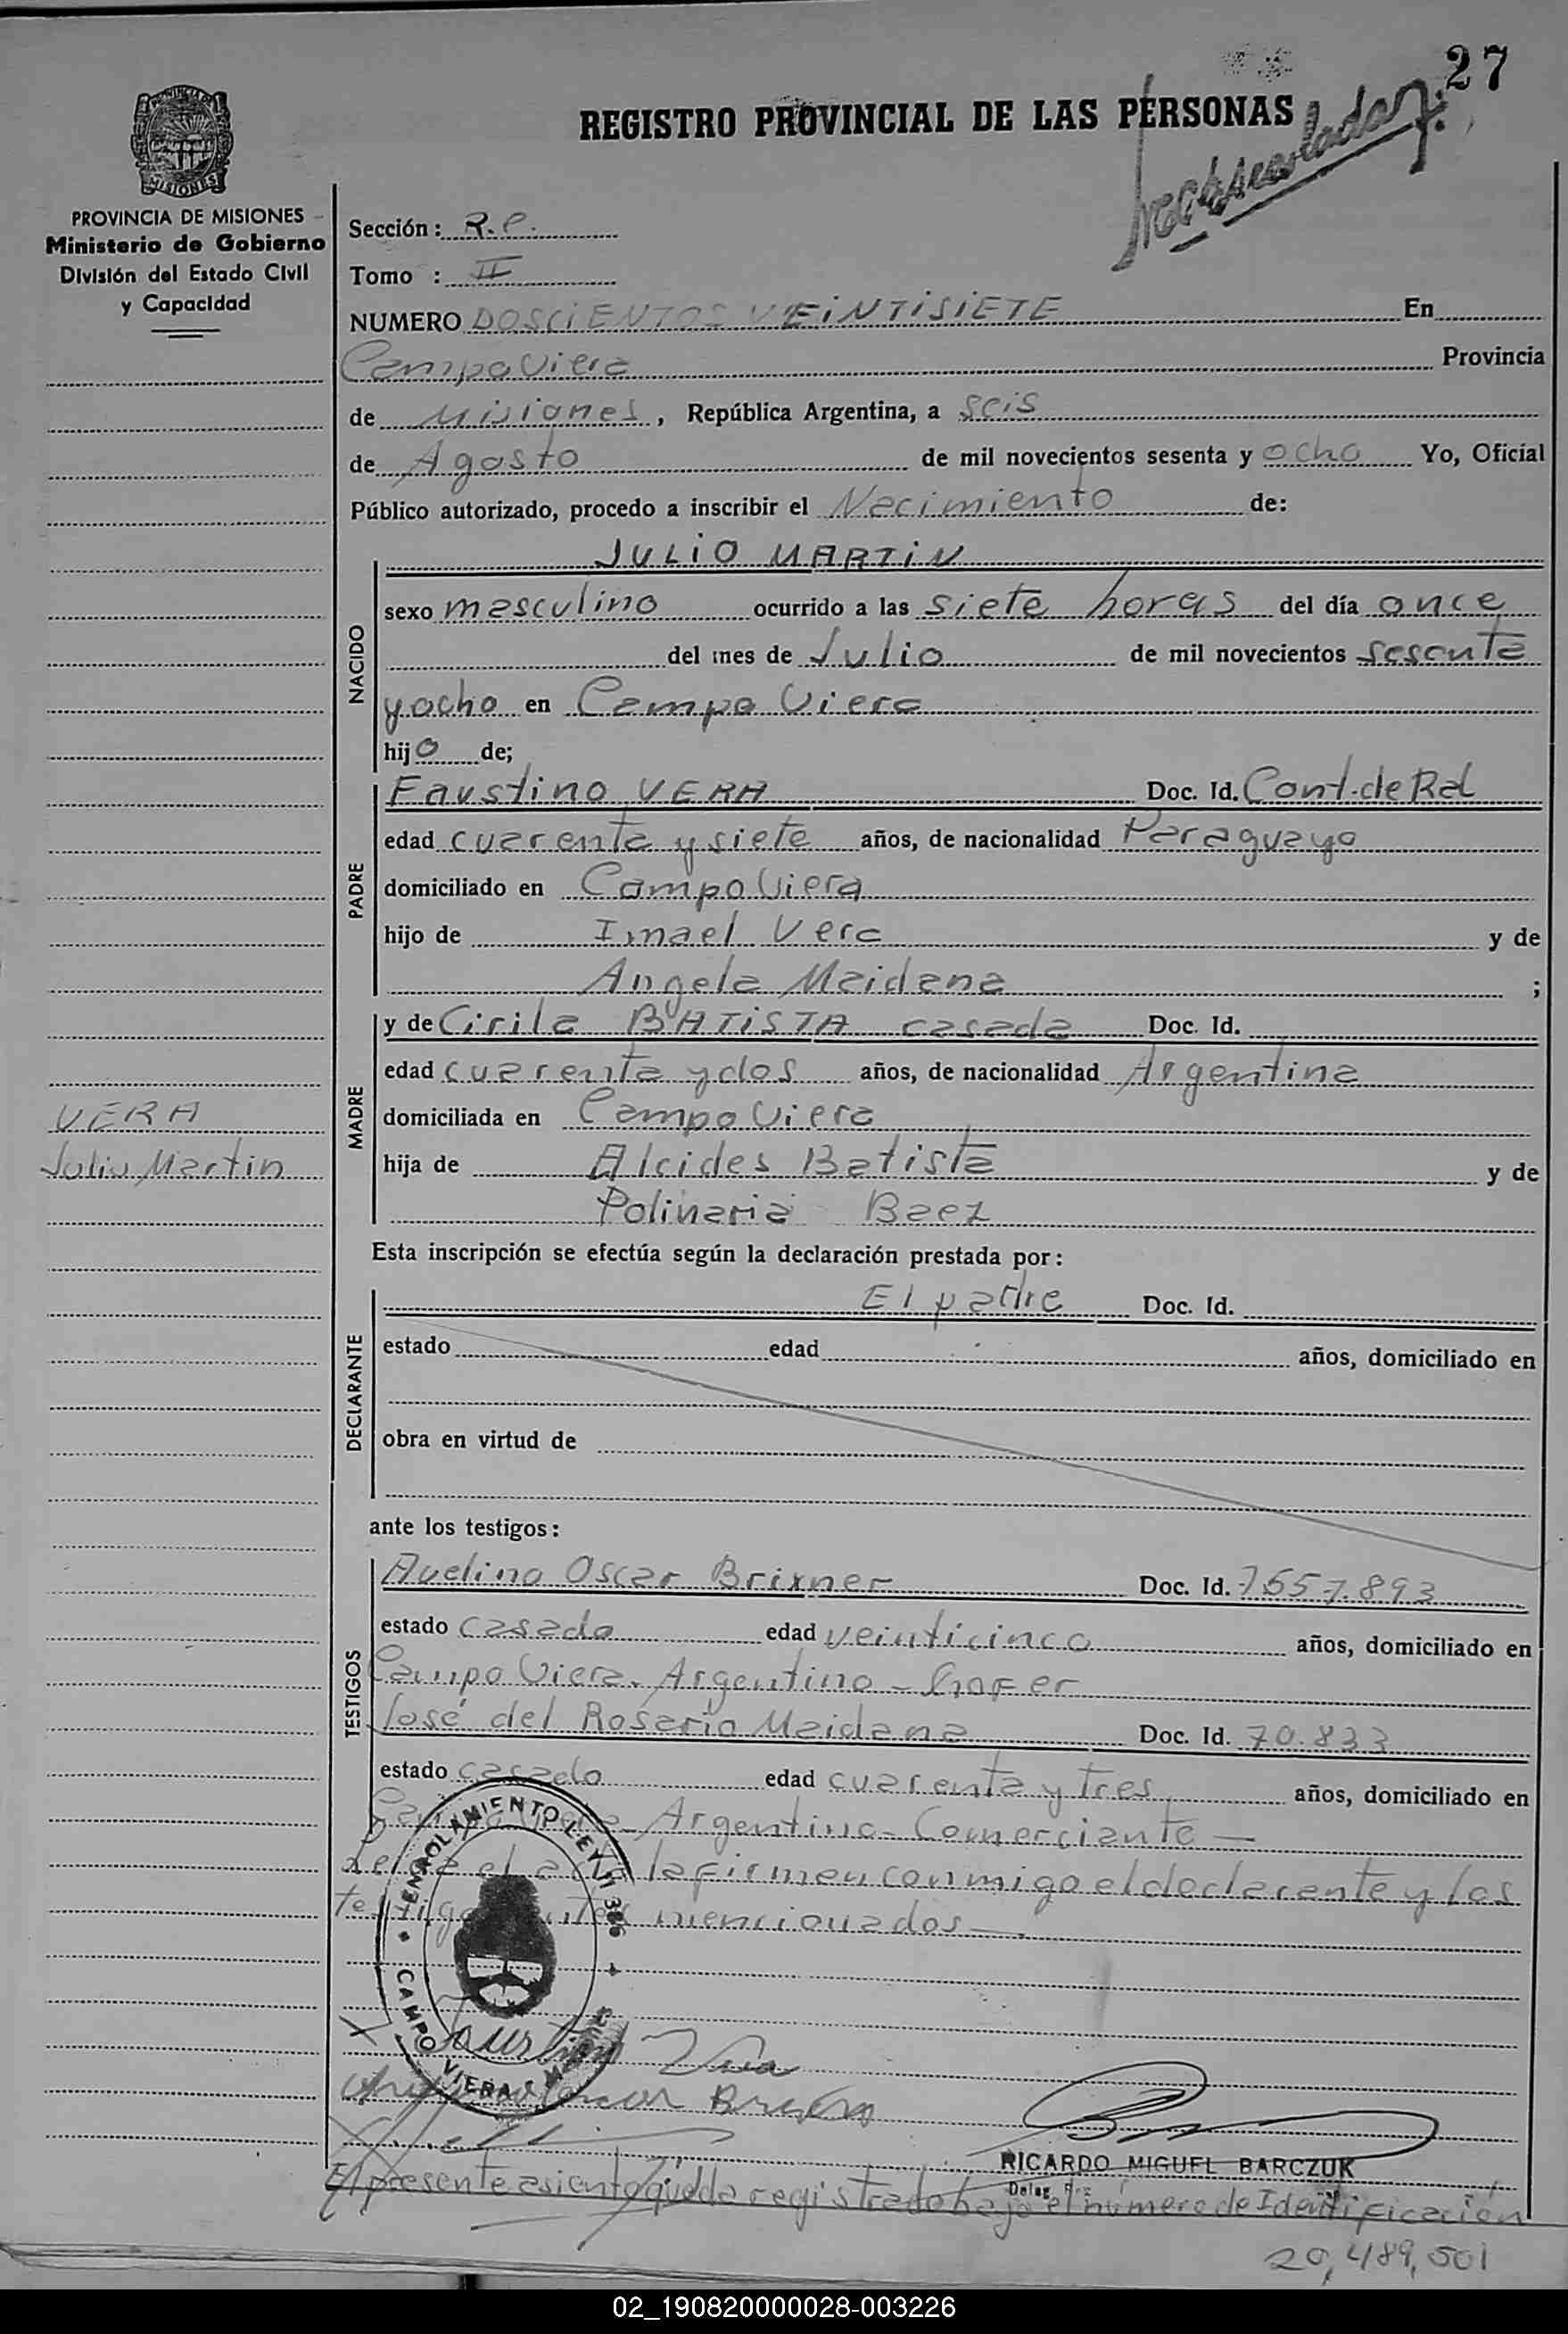 27
REGISTRO PROVINCIAL DE LAS PERSONAS
PROVINCIA DE MISIONES
MISIONES
PROVINCIA DE MISIONES
Ministerio de Gobierno
División del Estado Civil
y Capacidad
Sección: R.P.
Tomo : II
NUMERO DOSCIENTOS VEINTISIETE En
Campo Viera Provincia
de Misiones, República Argentina, a seis
de Agosto de mil novecientos sesenta y ocho Yo, Oficial
Público autorizado, procedo a inscribir el Nacimiento de:
JULIO MARTIN
NACIDO
sexo masculino ocurrido a las siete horas del día once
del mes de Julio de mil novecientos sesenta
y ocho en Campo Viera
hijo de;
PADRE
Faustino VERA Doc. Id. Cont. de Rd
edad cuarenta y siete años, de nacionalidad Paraguayo
domiciliado en Campo Viera
hijo de Imael Vera y de
Angela Maidana ;
MADRE
y de Cirila BATISTA casada Doc. Id.
edad cuarenta y dos años, de nacionalidad Argentina
domiciliada en Campo Viera
hija de Alcides Batista y de
Polinaria Baez
VERA
Julio Martin
Esta inscripción se efectúa según la declaración prestada por:
DECLARANTE
El padre Doc. Id.
estado edad años, domiciliado en
obra en virtud de
ante los testigos:
TESTIGOS
Avelino Oscar Brixner Doc. Id. 7.557.893
estado casado edad veinticinco años, domiciliado en
Campo Viera. Argentino - Chofer
José del Rosario Maidana Doc. Id. 70.833
estado casado edad cuarenta y tres años, domiciliado en
Campo Viera - Argentino - Comerciante -
Leída el acta la firman conmigo el declarante y los
testigos antes mencionados -.
ENROLAMIENTO LEY 11386
CAMPO VIERA - MISIONES
X Faustino Vera
RICARDO MIGUEL BARCZUK
El presente asiento queda registrado bajo el número de Identificación
20,489,501
02_190820000028-003226